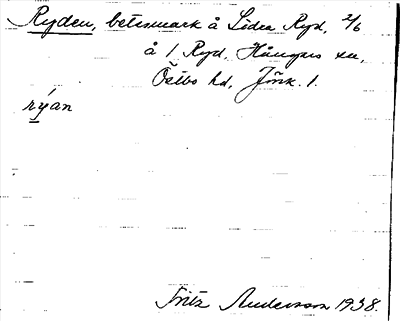 Ryden, betesmark å Lidea Ryd, 2/6
å 1 Ryd, Hångers sn,
Östbo hd, Jönk. l.
rýan
Fritz Anderson 1938.